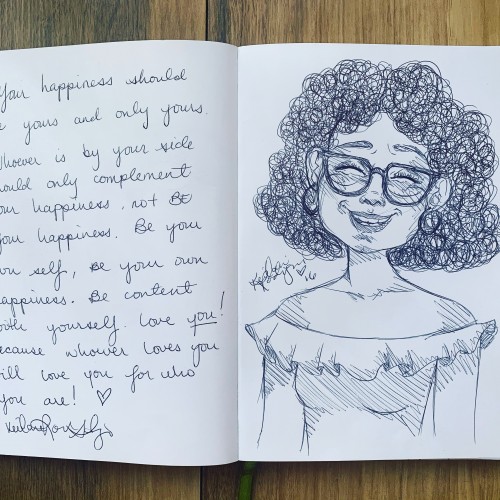 Your happiness should
yours and only yours.
Whoever is by your side
should only complement
your happiness, not BE
your happiness. Be your
own self, Be your own
happiness. Be content
with yourself. Love you!
because whoever loves you
will love you for who
you are! ♡
'16